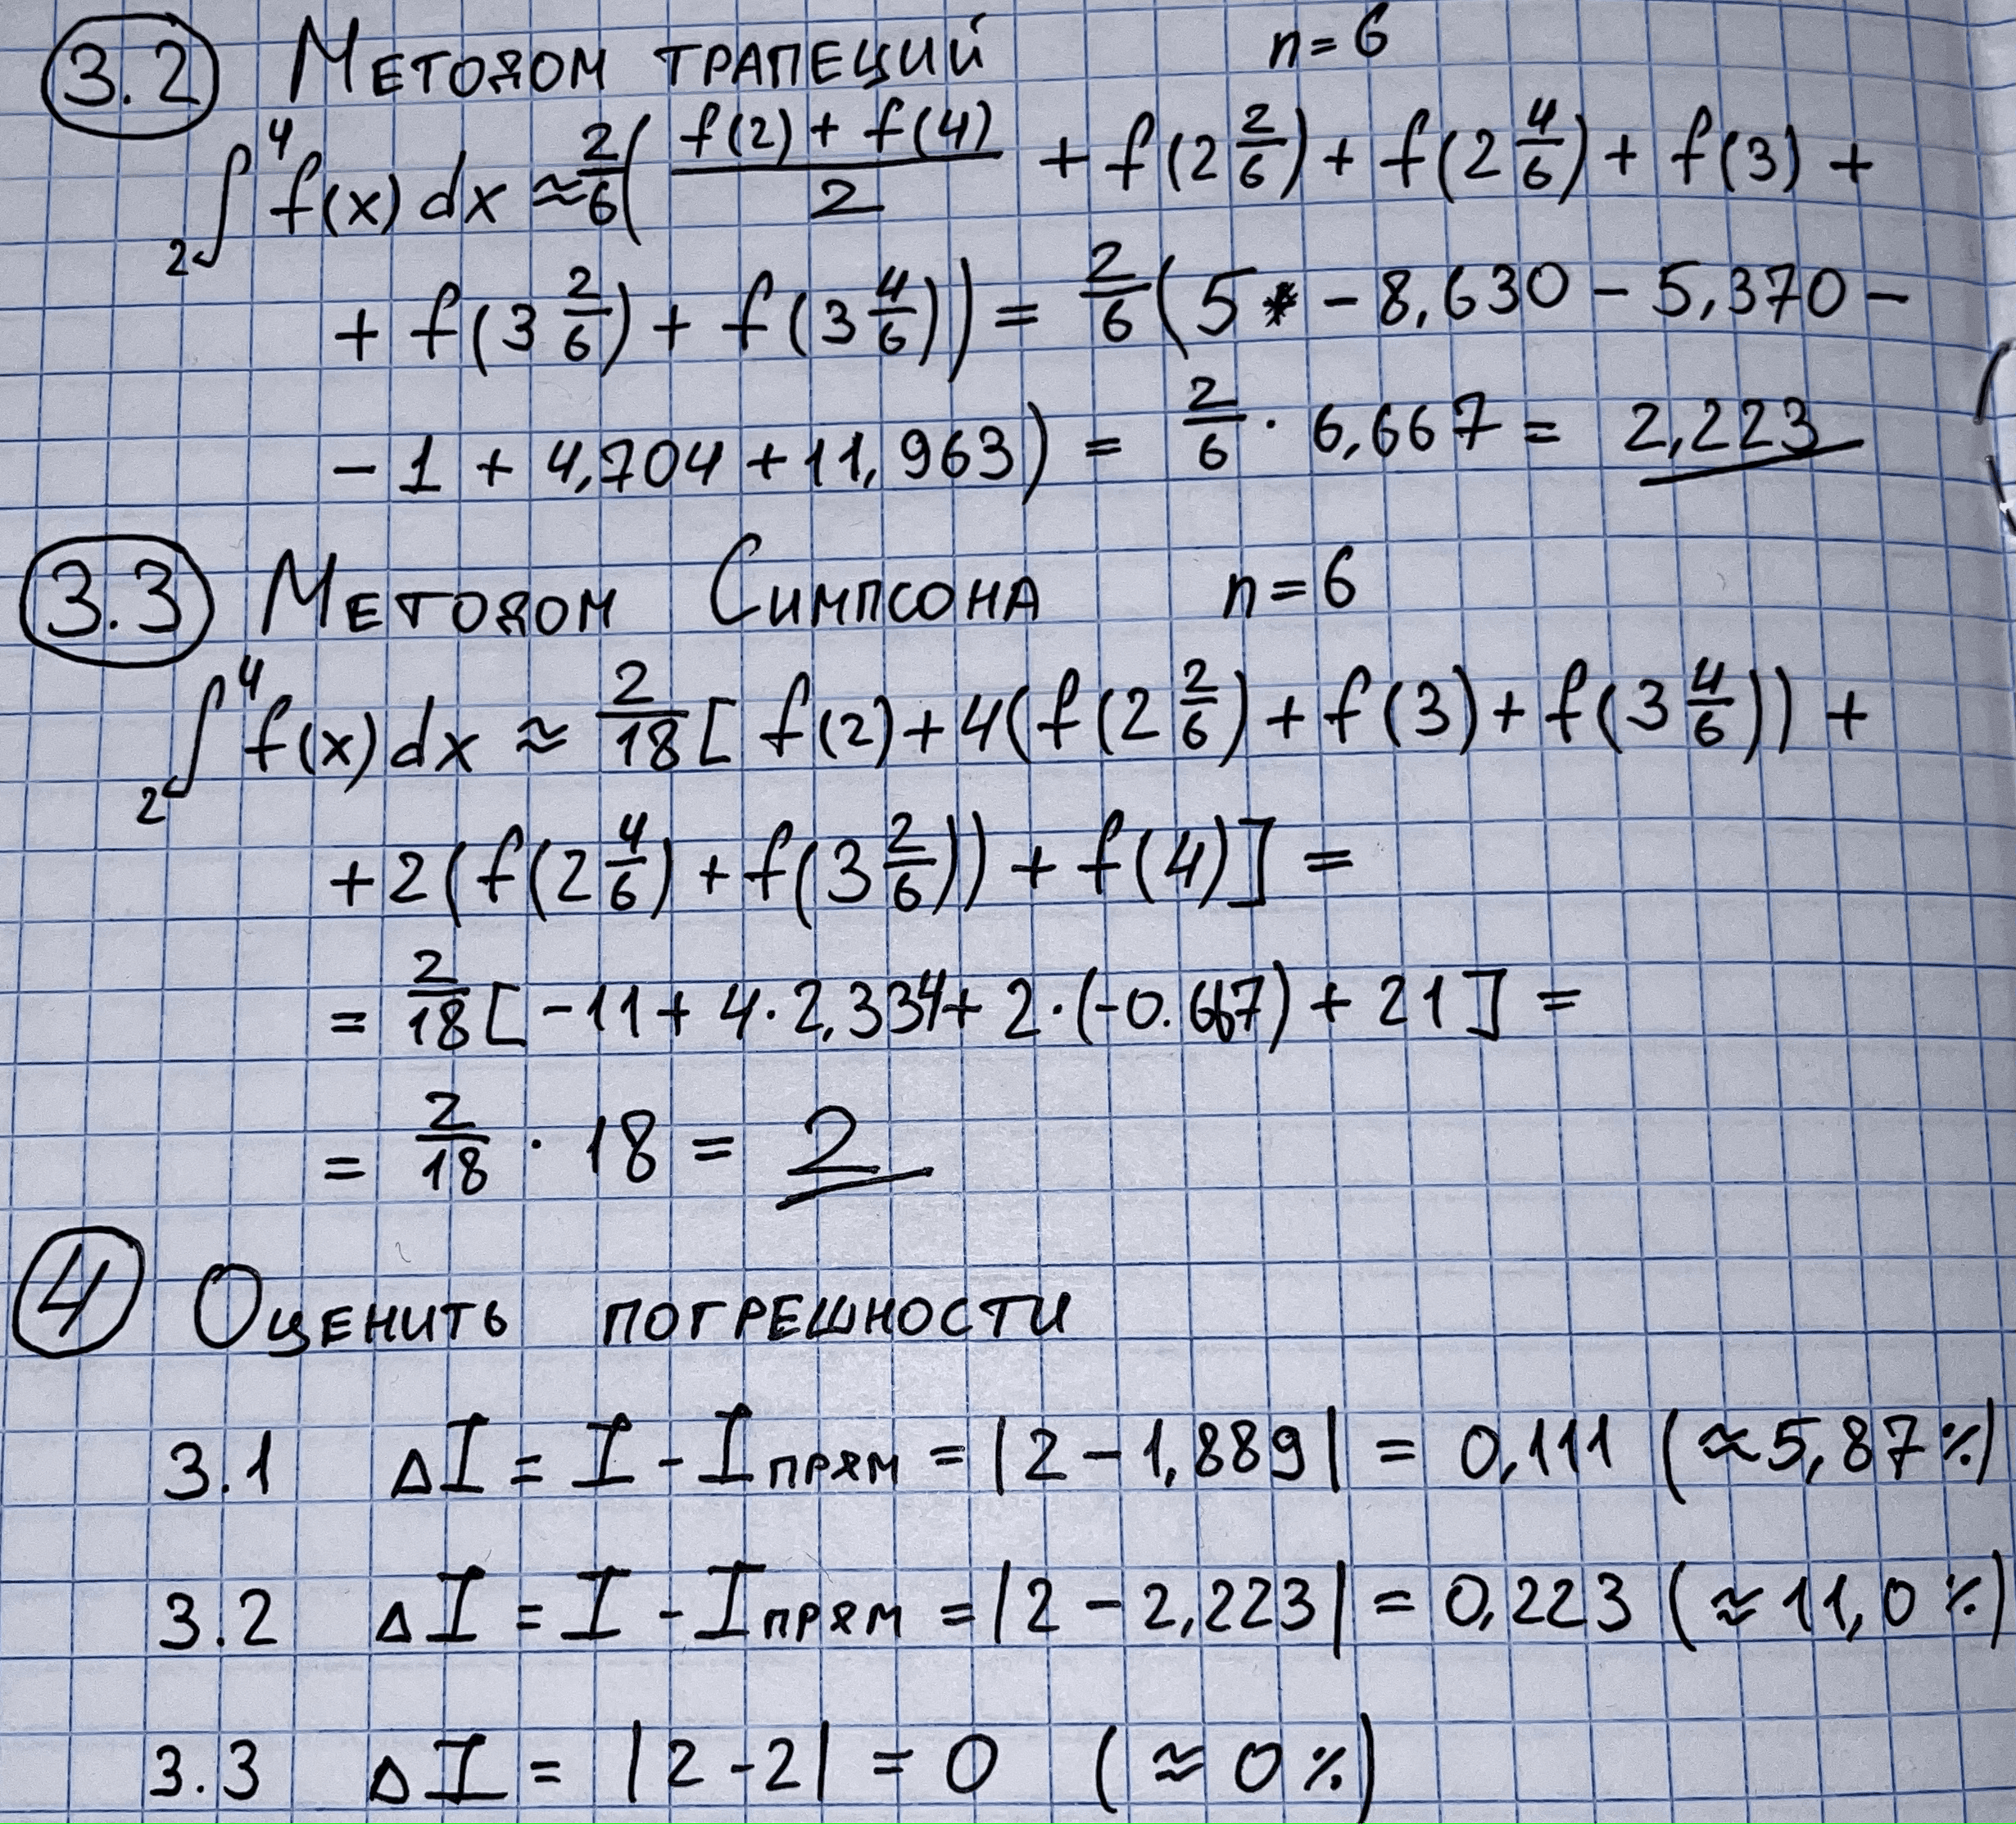 3.2 Методом трапеций n=6
∫₂⁴ f(x) dx ≈ 2/6 ( (f(2) + f(4))/2 + f(2 2/6) + f(2 4/6) + f(3) +
+ f(3 2/6) + f(3 4/6)) = 2/6 (5 - 8,630 - 5,370 -
- 1 + 4,704 + 11,963) = 2/6 · 6,667 = 2,223
3.3 Методом Симпсона n=6
∫₂⁴ f(x) dx ≈ 2/18 [ f(2) + 4(f(2 2/6) + f(3) + f(3 4/6)) +
+ 2(f(2 4/6) + f(3 2/6)) + f(4)] =
= 2/18 [ -11 + 4·2,334 + 2·(-0.667) + 21 ] =
= 2/18 · 18 = 2
4 Оценить погрешности
3.1 ΔI = I - Iпрям = |2 - 1,889| = 0,111 (≈5,87%)
3.2 ΔI = I - Iпрям = |2 - 2,223| = 0,223 (≈11,0%)
3.3 ΔI = |2-2| = 0 (≈0%)